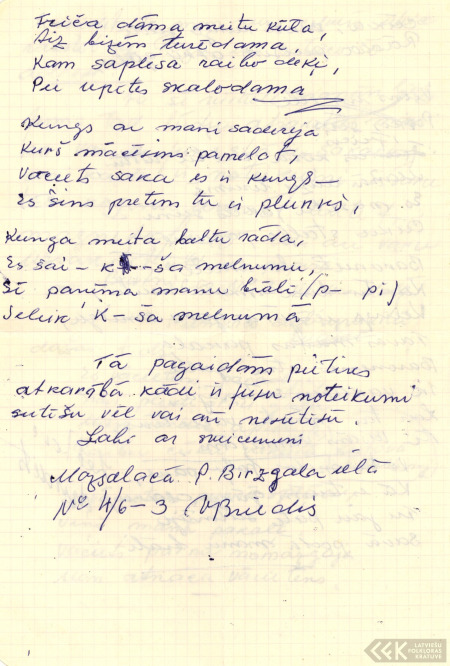 Feiča dāma meitu kūla,
Aiz bizēm turēdama,
Kam saplēsa raibo deķi,
Pie upītes skalodama
Kungs ar mani saderēja
Kurš mācēsim pamelot,
Vācets saka es ir kungs—
Es šim pretim tu ir plunkš,
Kunga meita baltu rāda,
Es šai - k - ša melnumu,
Šī paņēma manu brāli (p- pi)
Ieliek K- ša melnumā
Tā pagaidām pietiks
atkarībā kādi ir jūsu noteikumi
sūtīšu vēl vai arī nesūtīšu.
Labi ar sveicieniem
Mazsalacā P. Birzgala ielā
No 4/6-3 VBriedis
LATVIEŠU
FOLKLORAS
KRĀTUVE